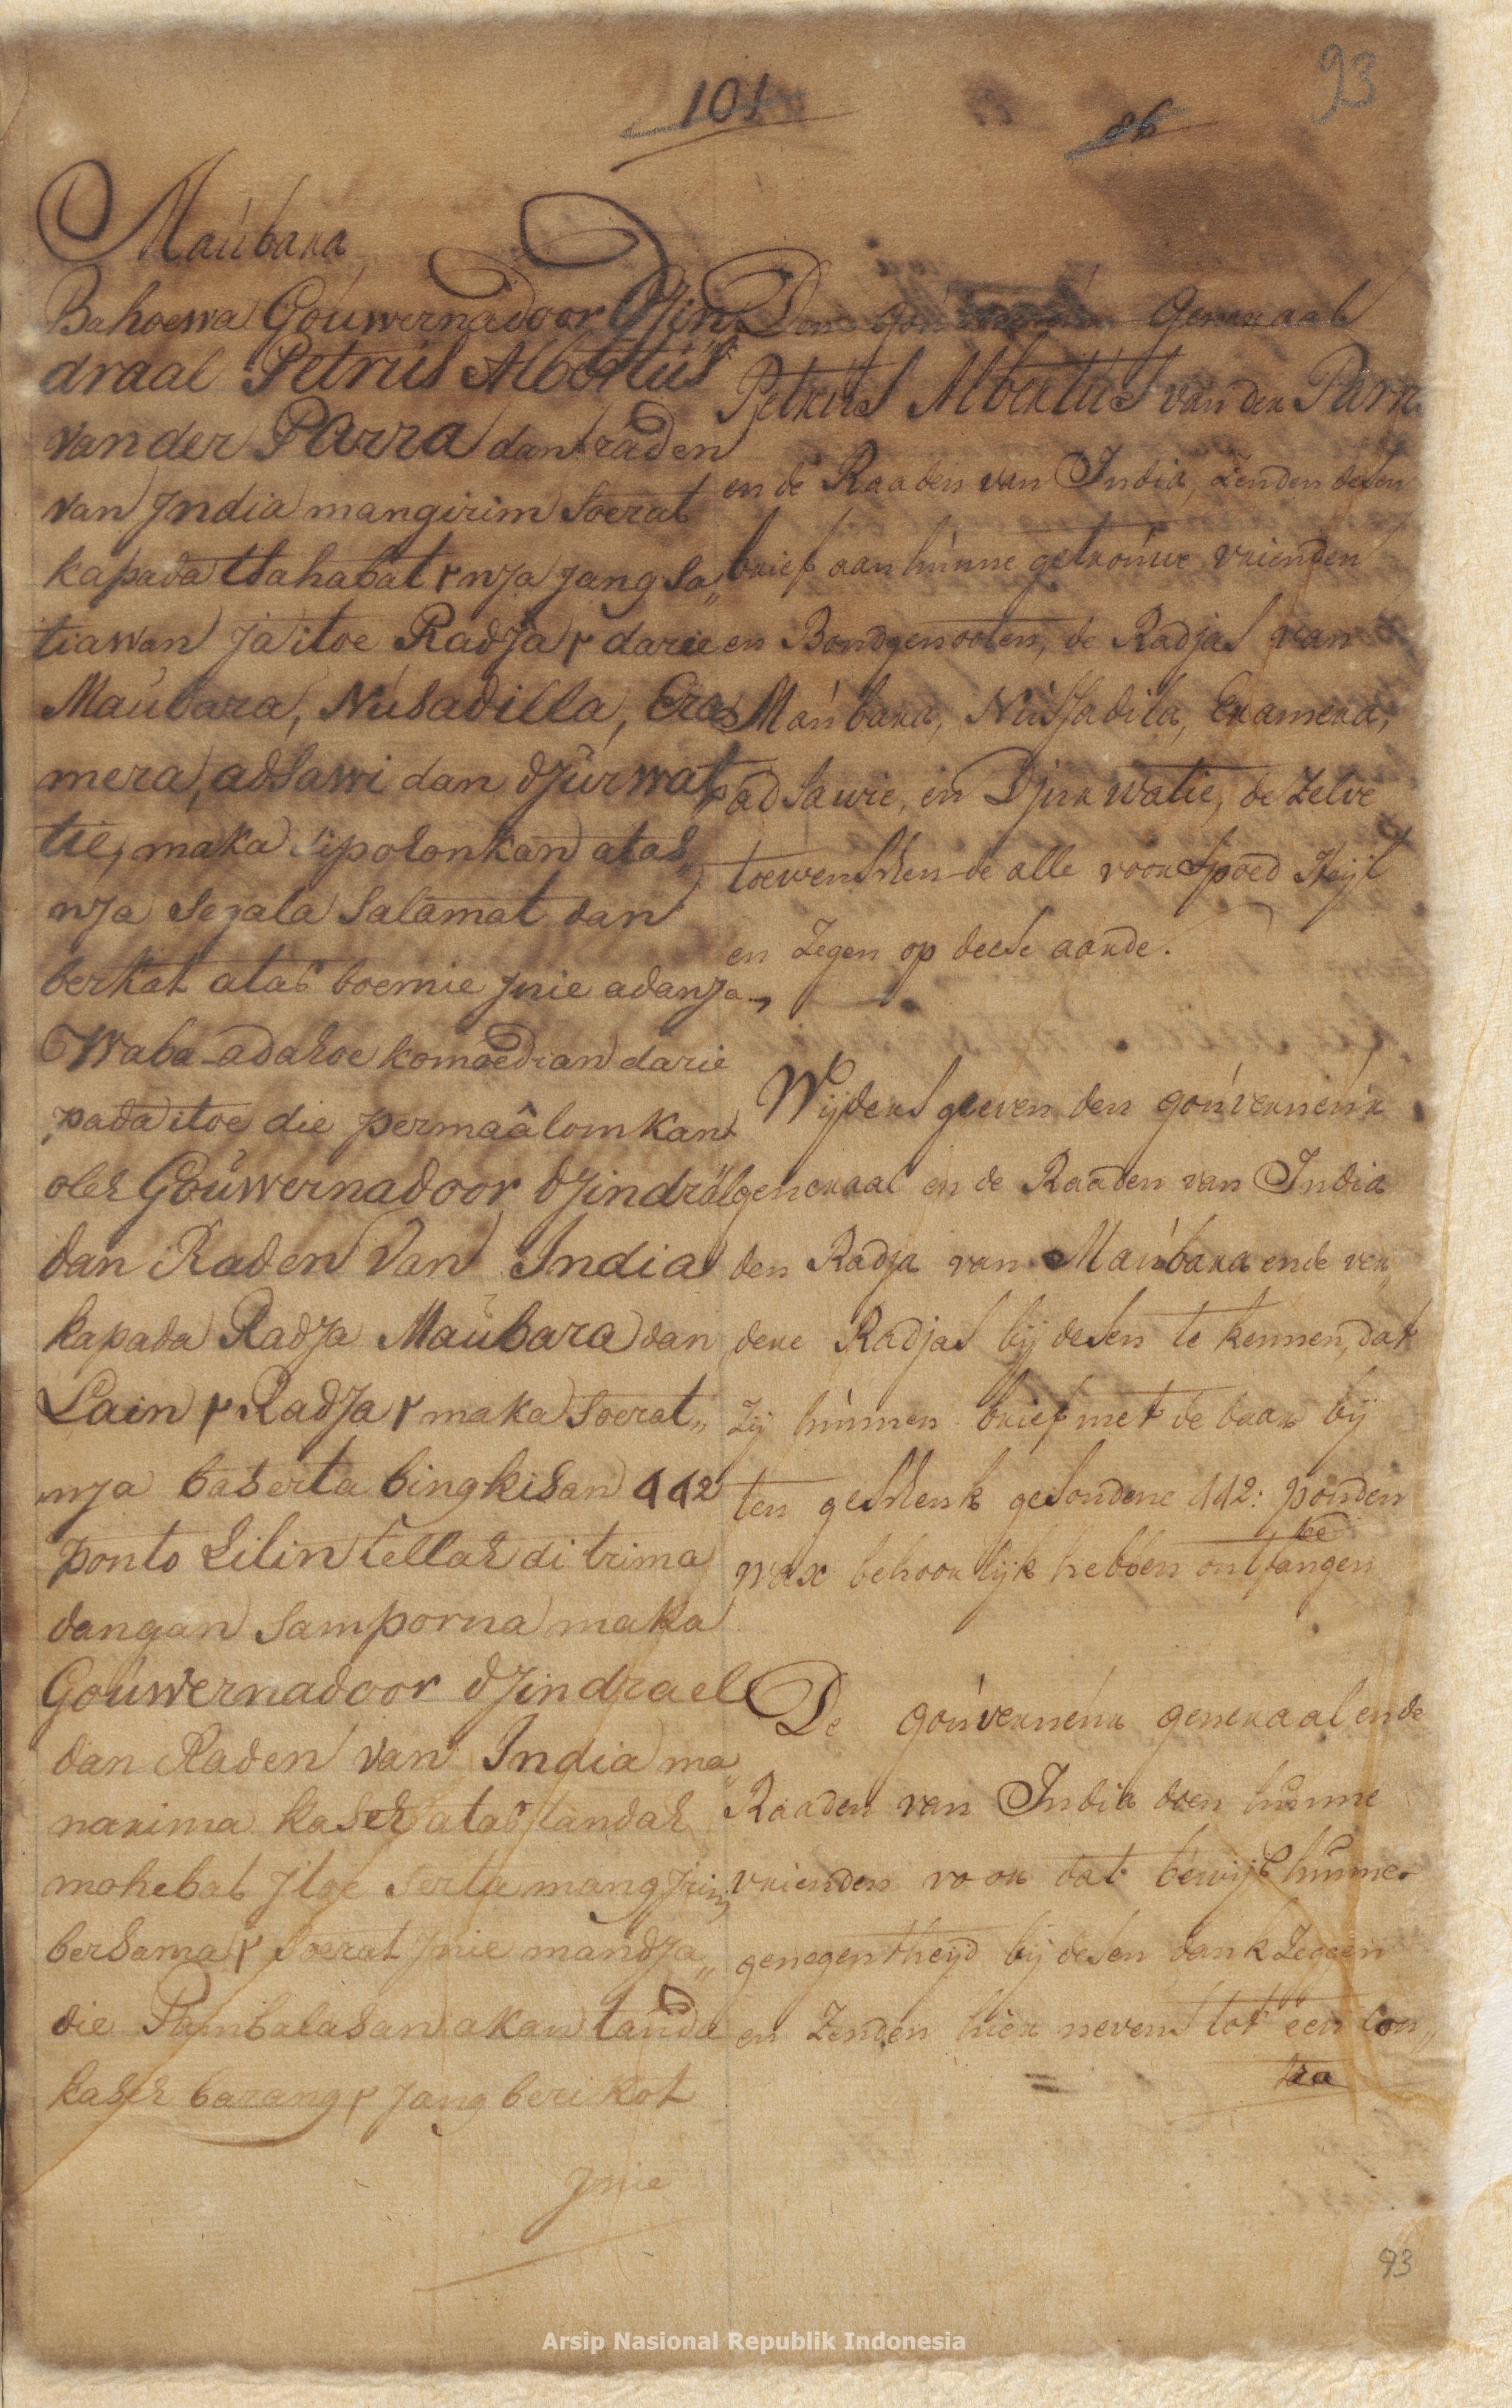 93
101
86
Maúbara
Bahoewa Goúwernadoor Djin
draal Petrús Albertús
van der Parra dan raden
van Jndia mangirim soerat
kapada tsahabat۲ nja jang sa„
tiawan ja itoe Radja۲ darie
Maúbara, Núsadilla, Era
mera, adsawi dan djúrwat
tie, maka dipohonkan atas„
nja segala salamat dan
berkat atas boemie jnie adanja
Waba adahoe komoedian darie
pada itoe die permaâlomkan
oleh Goúwernadoor djindrál
dan Raden van India
kapada Radja Maúbara dan
Lain۲ Radja۲ maka soerat„
nja baserta bingkisan 112
ponto Lilin tellah di trima
dangan samporna maka
Goúwernadoor djindrael
dan Raden van India ma„
narima kaseh atas tandah
mohebat jtoe serta mangjrim
bersama۲ soerat jnie mandja„
die Pambalasan akan tanda
kaseh barang۲ jang berikot
jnie
Den Generaal
Petrús Albertús van der Parra
en de Raaden van India, zenden desen
brief aan húnne getroúwe vrienden
en Bondgenooten, de Radjas van
Maúbara, Nússadila, Eramera,
adsawie, en Djurwatie, de zelve
toewenschen de alle voorspoed Heijl
en zegen op deese aarde.
Wijders geeven den goúverneúr
generaal en de Raaden van India
den Radja van Maúbara ende ver„
dere Radjas bij desen te kennen, dat
zij húnnen brief met de daar bij
ten geschenk gesondene 112: ponden
wax behoorlijk hebben ontfangen
De
De goúverneúr generaal en de
Raaden van India doen húnne
vrienden voor dat bewijs húnner
genegentheijd bij desen dank zeggen
en zenden hier nevens tot een Con„
tra
93
Arsip Nasional Republik Indonesia